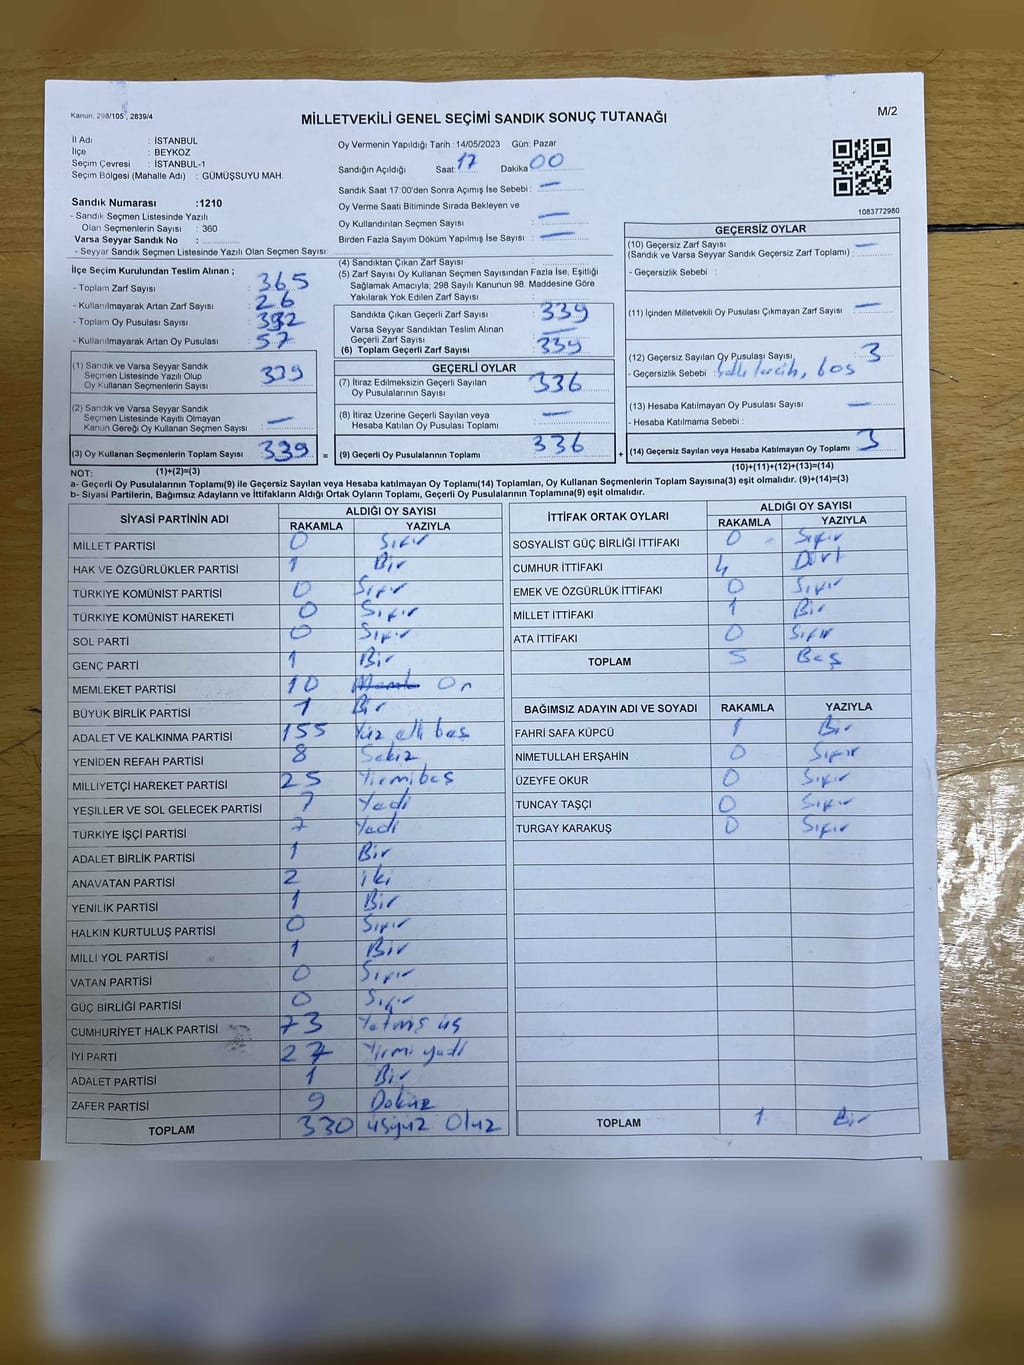 Kanun: 298/105, 2839/4
MİLLETVEKİLİ GENEL SEÇİMİ SANDIK SONUÇ TUTANAĞI
M/2
İl Adı : İSTANBUL
İlçe : BEYKOZ
Seçim Çevresi : İSTANBUL-1
Seçim Bölgesi (Mahalle Adı) : GÜMÜŞSUYU MAH.
Sandık Numarası :1210
- Sandık Seçmen Listesinde Yazılı
Olan Seçmenlerin Sayısı : 360
Varsa Seyyar Sandık No :
- Seyyar Sandık Seçmen Listesinde Yazılı Olan Seçmen Sayısı:
Oy Vermenin Yapıldığı Tarih :14/05/2023 Gün: Pazar
Sandığın Açıldığı Saat: 17 Dakika 00
Sandık Saat 17:00'den Sonra Açımış İse Sebebi : —
Oy Verme Saati Bitiminde Sırada Bekleyen ve
Oy Kullandırılan Seçmen Sayısı : —
Birden Fazla Sayım Döküm Yapılmış İse Sayısı : —
1083772980
İlçe Seçim Kurulundan Teslim Alınan ;
- Toplam Zarf Sayısı : 365
- Kullanılmayarak Artan Zarf Sayısı : 26
- Toplam Oy Pusulası Sayısı : 392
- Kullanılmayarak Artan Oy Pusulası : 57
(1) Sandık ve Varsa Seyyar Sandık
Seçmen Listesinde Yazılı Olup
Oy Kullanan Seçmenlerin Sayısı : 339
(2) Sandık ve Varsa Seyyar Sandık
Seçmen Listesinde Kayıtlı Olmayan
Kanun Gereği Oy Kullanan Seçmen Sayısı : —
(3) Oy Kullanan Seçmenlerin Toplam Sayısı : 339 =
(4) Sandıktan Çıkan Zarf Sayısı :
(5) Zarf Sayısı Oy Kullanan Seçmen Sayısından Fazla İse, Eşitliği
Sağlamak Amacıyla; 298 Sayılı Kanunun 98. Maddesine Göre
Yakılarak Yok Edilen Zarf Sayısı :
Sandıkta Çıkan Geçerli Zarf Sayısı : 339
Varsa Seyyar Sandıktan Teslim Alınan
Geçerli Zarf Sayısı : —
(6) Toplam Geçerli Zarf Sayısı : 339
GEÇERLİ OYLAR
(7) İtiraz Edilmeksizin Geçerli Sayılan
Oy Pusulalarının Sayısı : 336
(8) İtiraz Üzerine Geçerli Sayılan veya
Hesaba Katılan Oy Pusulası Toplamı : —
(9) Geçerli Oy Pusulalarının Toplamı : 336 +
GEÇERSİZ OYLAR
(10) Geçersiz Zarf Sayısı
(Sandık ve Varsa Seyyar Sandık Geçersiz Zarf Toplamı) : —
- Geçersizlik Sebebi :
(11) İçinden Milletvekili Oy Pusulası Çıkmayan Zarf Sayısı : —
(12) Geçersiz Sayılan Oy Pusulası Sayısı : 3
- Geçersizlik Sebebi : boş
(13) Hesaba Katılmayan Oy Pusulası Sayısı : —
- Hesaba Katılmama Sebebi :
(14) Geçersiz Sayılan veya Hesaba Katılmayan Oy Toplamı : 3
NOT: (1)+(2)=(3) (10)+(11)+(12)+(13)=(14)
a- Geçerli Oy Pusulalarının Toplamı(9) ile Geçersiz Sayılan veya Hesaba katılmayan Oy Toplamı(14) Toplamları, Oy Kullanan Seçmenlerin Toplam Sayısına(3) eşit olmalıdır. (9)+(14)=(3)
b- Siyasi Partilerin, Bağımsız Adayların ve İttifakların Aldığı Ortak Oyların Toplamı, Geçerli Oy Pusulalarının Toplamına(9) eşit olmalıdır.
SİYASİ PARTİNİN ADI ALDIĞI OY SAYISI
RAKAMLA YAZIYLA
MİLLET PARTİSİ 0 Sıfır
HAK VE ÖZGÜRLÜKLER PARTİSİ 1 Bir
TÜRKİYE KOMÜNİST PARTİSİ 0 Sıfır
TÜRKİYE KOMÜNİST HAREKETİ 0 Sıfır
SOL PARTİ 0 Sıfır
GENÇ PARTİ 1 Bir
MEMLEKET PARTİSİ 10 On
BÜYÜK BİRLİK PARTİSİ 1 Bir
ADALET VE KALKINMA PARTİSİ 155 Yüz elli beş
YENİDEN REFAH PARTİSİ 8 Sekiz
MİLLİYETÇİ HAREKET PARTİSİ 25 Yirmibeş
YEŞİLLER VE SOL GELECEK PARTİSİ 7 Yedi
TÜRKİYE İŞÇİ PARTİSİ 7 Yedi
ADALET BİRLİK PARTİSİ 1 Bir
ANAVATAN PARTİSİ 2 iki
YENİLİK PARTİSİ 1 Bir
HALKIN KURTULUŞ PARTİSİ 0 Sıfır
MİLLİ YOL PARTİSİ 1 Bir
VATAN PARTİSİ 0 Sıfır
GÜÇ BİRLİĞİ PARTİSİ 0 Sıfır
CUMHURİYET HALK PARTİSİ 73 Yetmiş üç
İYİ PARTİ 27 Yirmi yedi
ADALET PARTİSİ 1 Bir
ZAFER PARTİSİ 9 Dokuz
TOPLAM 330 üçyüz Otuz
İTTİFAK ORTAK OYLARI ALDIĞI OY SAYISI
RAKAMLA YAZIYLA
SOSYALİST GÜÇ BİRLİĞİ İTTİFAKI 0 Sıfır
CUMHUR İTTİFAKI 4 Dört
EMEK VE ÖZGÜRLÜK İTTİFAKI 0 Sıfır
MİLLET İTTİFAKI 1 Bir
ATA İTTİFAKI 0 Sıfır
TOPLAM 5 Beş
BAĞIMSIZ ADAYIN ADI VE SOYADI RAKAMLA YAZIYLA
FAHRİ SAFA KÜPCÜ 1 Bir
NİMETULLAH ERŞAHİN 0 Sıfır
ÜZEYFE OKUR 0 Sıfır
TUNCAY TAŞÇI 0 Sıfır
TURGAY KARAKUŞ 0 Sıfır
TOPLAM 1 Bir